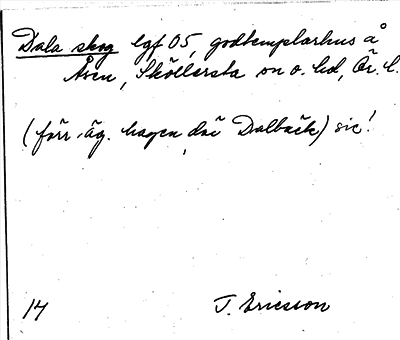 Dala skog lgf 05, godtemplarhus å
Åven, Sköllersta sn o. hd, Ör. l.
(förr äg. hagen, dai Dalbäck) sic!
14 T. Ericsson